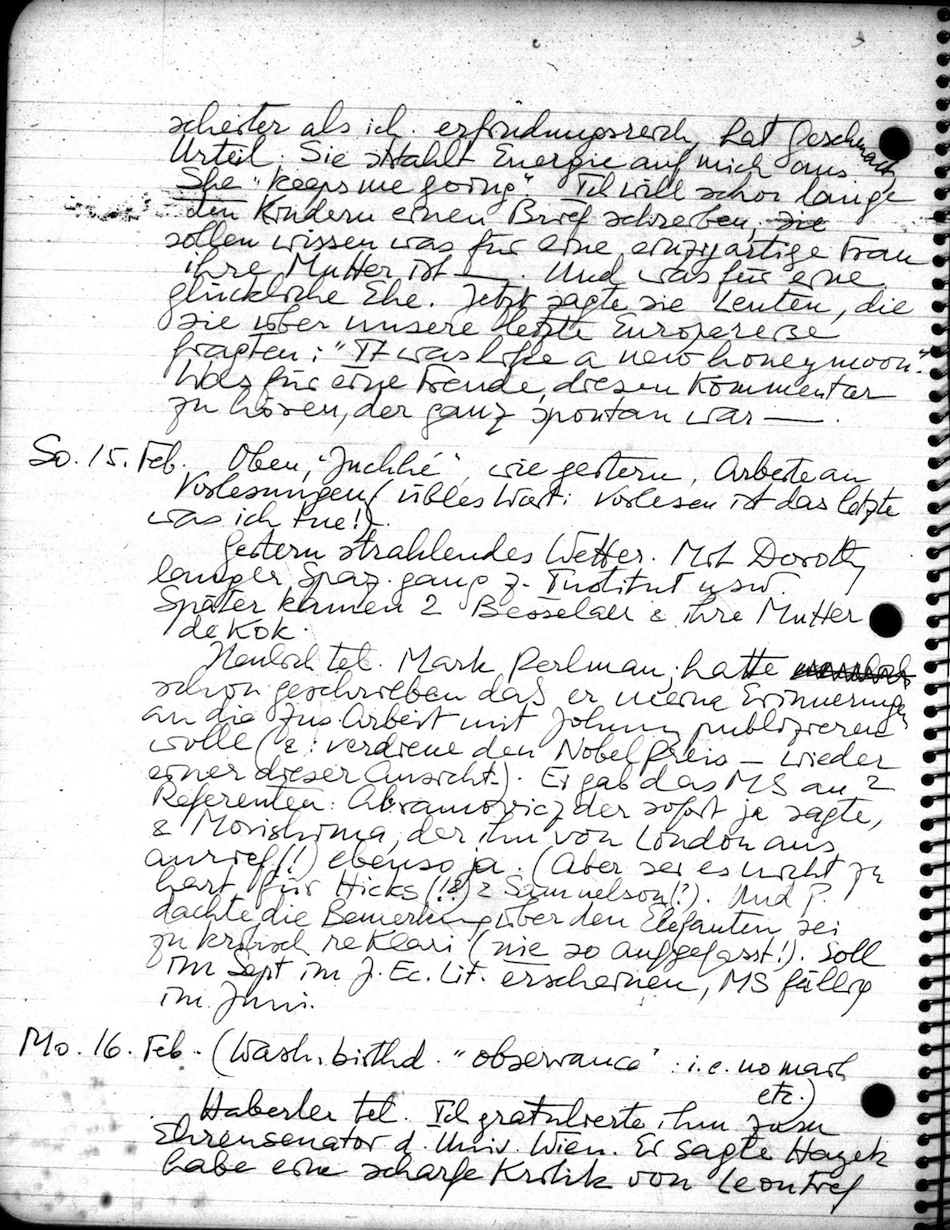 scheiter als ich. erfindungsreich, hat Geschmack,
Urteil. Sie strahlt Energie auf mich aus
She "keeps me going." Ich will schon lange
den Kindern einen Brief schreiben, sie
sollen wissen was für eine einzigartige Frau
ihre Mutter ist —. Und was für eine
glückliche Ehe. Jetzt sagte sie Leuten, die
sie über unsere letzte Europareise
fragten: "It was like a new honeymoon."
Was für eine Freude, diesen Kommentar
zu hören, der ganz spontan war —.
So. 15. Feb. Oben, "Juchhé", wie gestern, Arbeite an
Vorlesungen (übles Wort: Vorlesen ist das letzte
was ich tue!).
Gestern strahlendes Wetter. Mit Dorothy
langer Spaz.gang z. Institut usw.
Später kamen 2 & ihre Mutter
de Kok.
Neulich tel. Mark Perlman; hatte
schon geschrieben dass er meine Erinnerungen
an die Zus.Arbeit mit Johnny publizieren
wolle (&: verdiene den Nobelpreis – wieder
einer dieser Ansicht.). Er gab das MS an 2
Referenten: Abramovicz der sofort ja sagte,
& Morishima, der ihn von London aus
anrief (!) ebenso ja. (Aber sei es nicht zu
hart für Hicks (!&) & Samuelson (?). Und P.
dachte die Bemerkung über den Elefanten sei
zu kritisch re Klari (nie so aufgefasst!). Soll
im Sept im J. Ec. Lit. erscheinen, MS fällig
im Juni.
Mo. 16. Feb. (Wash. birthd. "observance": i.e. no mail
etc.)
Haberler tel. Ich gratulierte ihm zum
Ehrensenator d. Univ. Wien. Er sagte Hayek
habe eine scharfe Kritik von Leontief